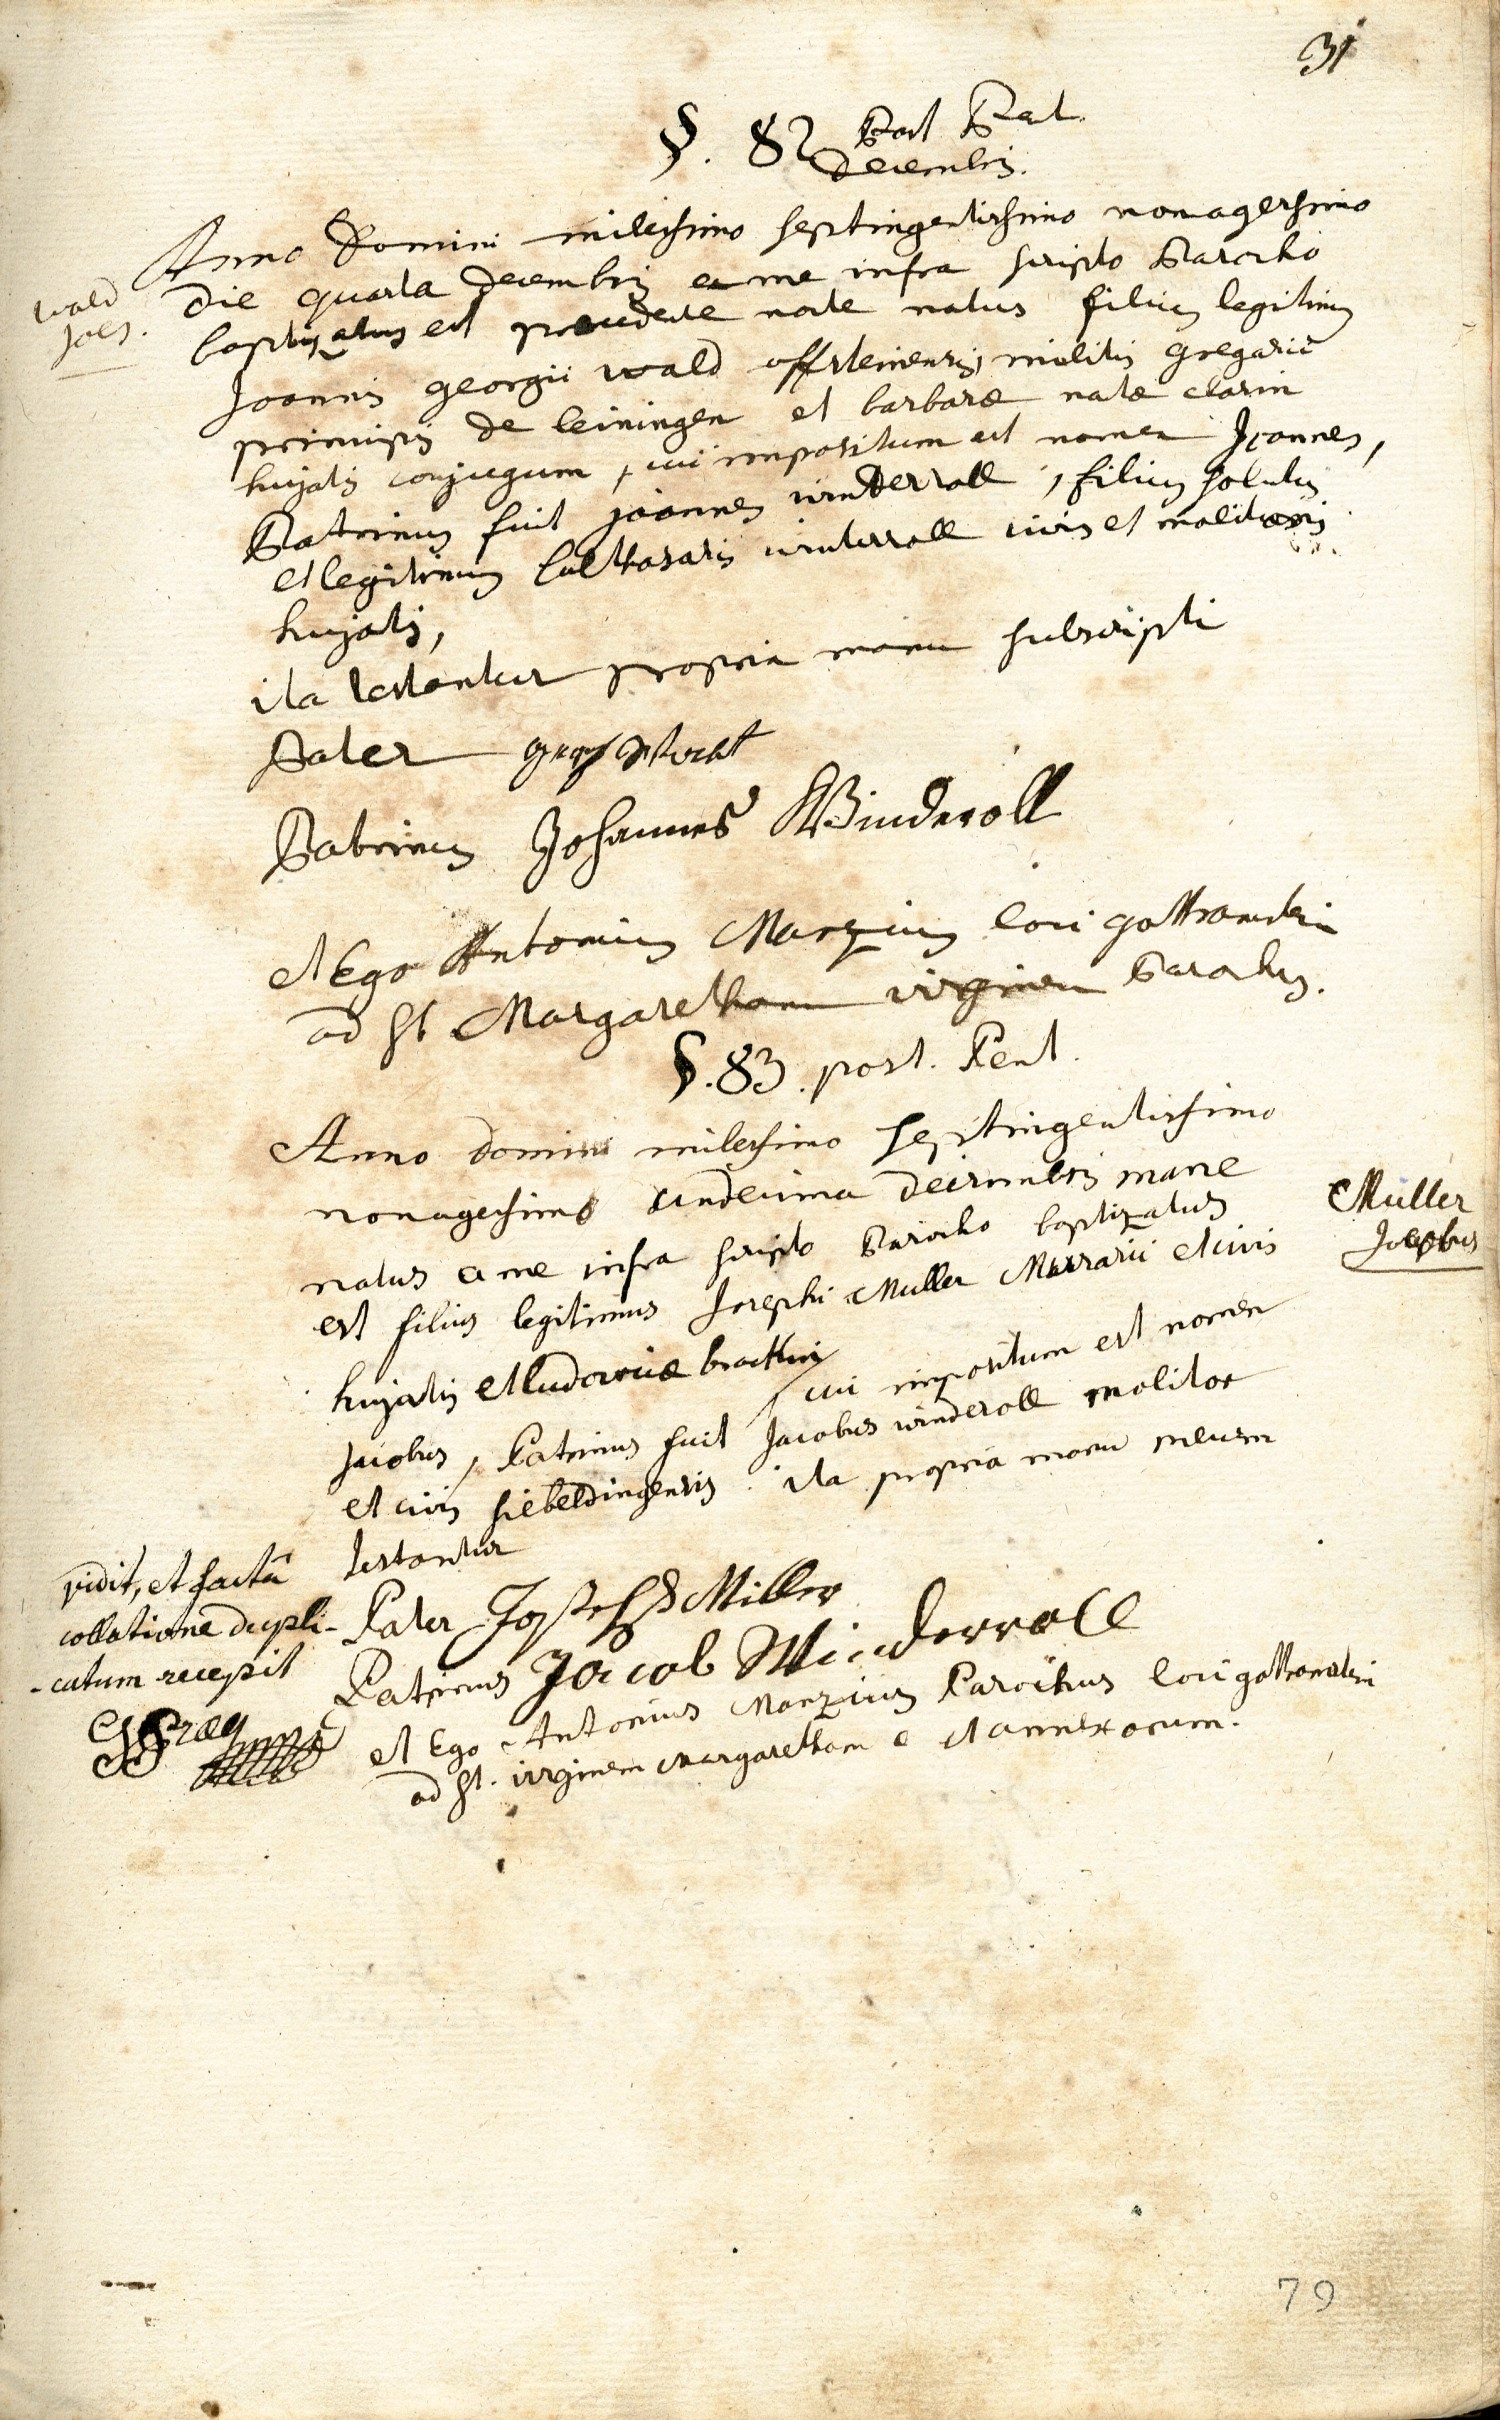 31
§. 82 Post Pent.
Decembris.
Anno Domini milesimo septingentissimo nonagessimo
die quarta Decembris a me infra scripto Parocho
Wald
Joes.
baptizatus est precedente nocte natus filius legitimus
Joannis georgii wald offsteinensis, militis gregarii
principis de leiningen et barbaræ natæ clarin
hujatis conjugum, cui impositum est nomen Joannes,
Patrinus fuit joannes winderroll, filius solutus
et legitimus balthasaris winterroll civis et molitoris
hujatis,
ita testantur propria manu subscripti
Pater
Patrinus Johannes Winderoll
et Ego Antonius Manzius loci gottramstein
ad St Margaretham virginem Parochus.
§. 83. post. Pent.
Anno domini milessimo septingentissimo
nonagessimo undecima decembris mane
natus a me infra scripto Parocho baptizatus
est filius legitimus Josephi Muller Murrarii et civis
Müller
Jacobus
hujatis et ludovicæ
cui impositum est nomen
Jacobus, Patrinus fuit Jacobus winderoll molitor
et civis siebeldingensis. ita propria manu mecum
testantur
vidit, et factâ
collatione dupli-
-catum recepit
Pater Joseph Miller
Patrinus Jacob Winderroll
et Ego Antonius Manzius Parochus loci gottramstein
ad St. virginem Margaretham et annexorum.
79